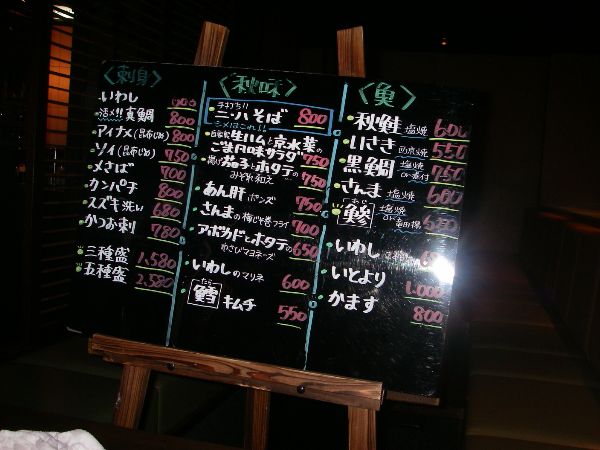 〈刺身〉
いわし 600
活〆!! 真鯛 800
アイナメ(昆布じめ) 800
ソイ(昆布じめ) 750
メさば 700
カンパチ 800
スズキ洗い 680
かつお刺 780
三種盛 1,580
五種盛 2,580
〈秋味〉
手打ち!!
二・八そば 800
〆はこれ!!
自家製 生ハムと京水菜の
ご馳走風味サラダ 750
揚げ茄子とホタテの
みぞれ和え 750
あん肝 ポンズ 750
さんまの梅じそ巻フライ 700
アボカドとホタテの
わさびマヨネーズ 650
いわしのマリネ 600
たら
鱈 キムチ 550
〈魚〉
秋鮭 塩焼 600
いさき 西京焼 550
黒鯛 塩焼 or 煮付 750
さんま 塩焼 600
鰺 塩焼 or
いわし
いとより 1,000
かます 800